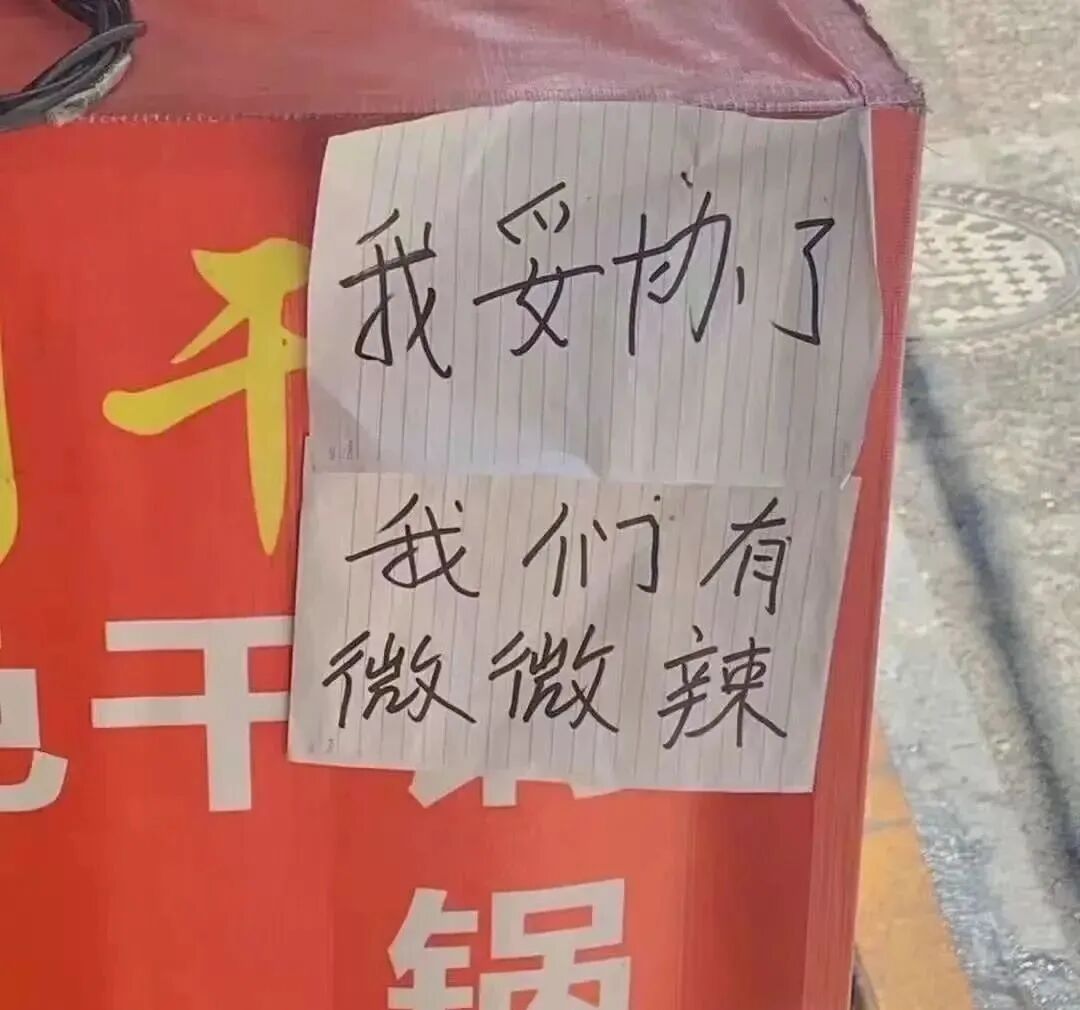 我妥协了
我们有
微微辣
干
锅